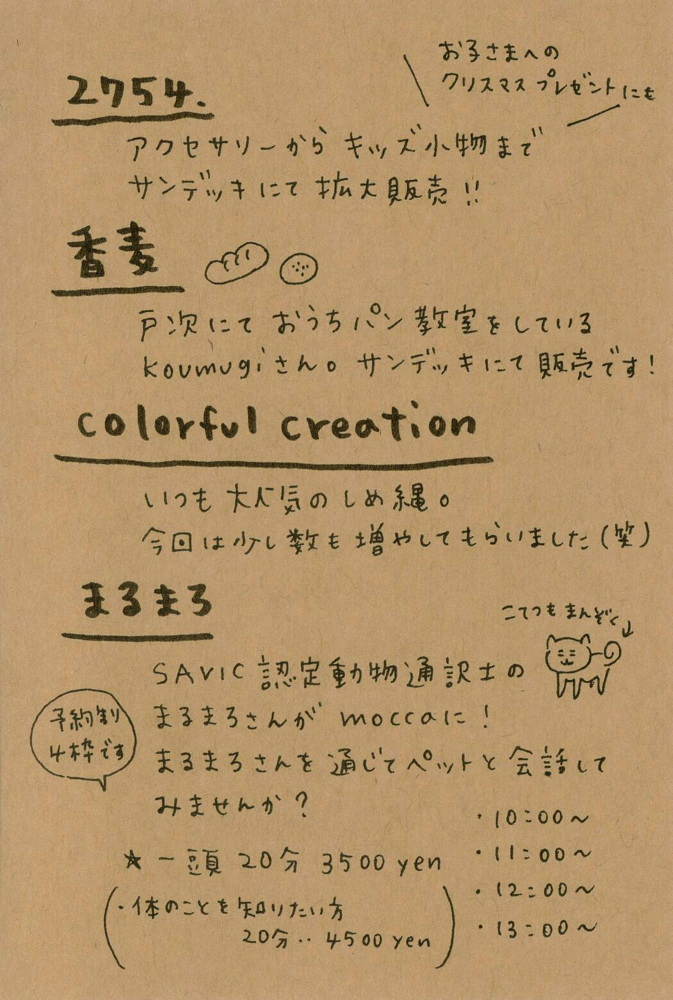 お子さまへの
クリスマスプレゼントにも
2754.
アクセサリーから キッズ小物まで
サンデッキにて 拡大販売!!
香麦
戸次にて おうちパン教室をしている
koumugiさん。サンデッキにて 販売です!
colorful creation
いつも 大人気の しめ縄。
今回は少し数も増やしてもらいました(笑)
まるまろ
こてつもまんぞく
SAVIC 認定動物通訳士の
まるまろさんが moccaに!
予約制
4枠です
まるまろさんを 通じて ペットと 会話して
みませんか?
・10:00~
・11:00~
・12:00~
・13:00~
★ 一頭 20分 3500 yen
(・体のことを知りたい方
20分‥4500 yen)